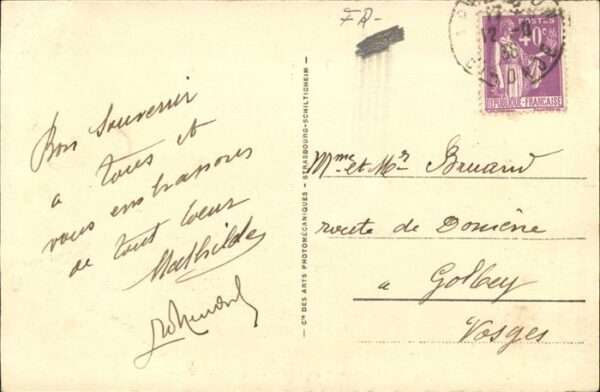 Bon Souvenir
a tous et
vous embrassons
de tout coeur
Mathilde
Cie DES ARTS PHOTOMÉCANIQUES - STRASBOURG-SCHILTIGHEIM
POSTES
40c
RÉPUBLIQUE-FRANÇAISE
12
Mme et Mr Bruand
route de
a Golbey
Vosges